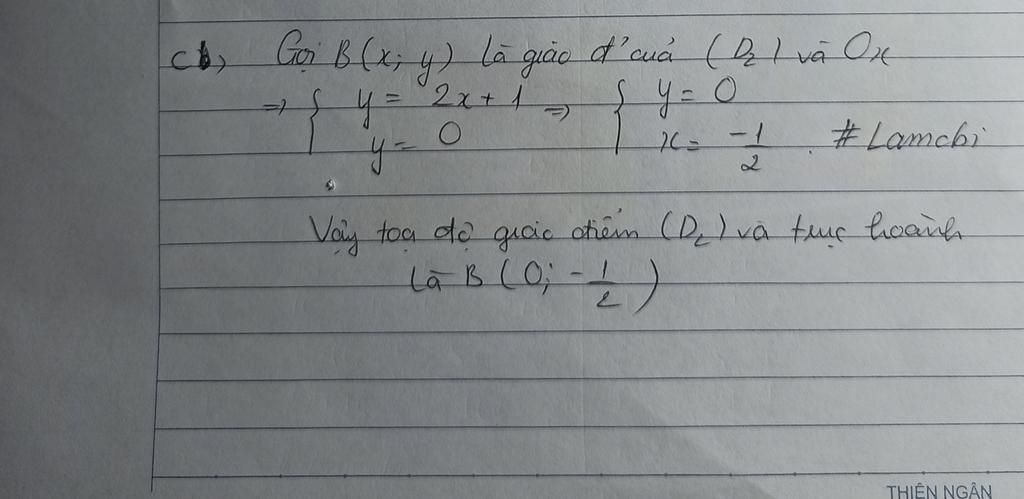 c) Gọi B(x; y) là giao đ' của (D2) và Ox
=> { y = 2x + 1 => { y = 0
y = 0 x = -1/2 . # Lamchi
Vậy toạ độ giao điểm (D2) và trục hoành
là B (0; -1/2)
THIÊN NGÂN